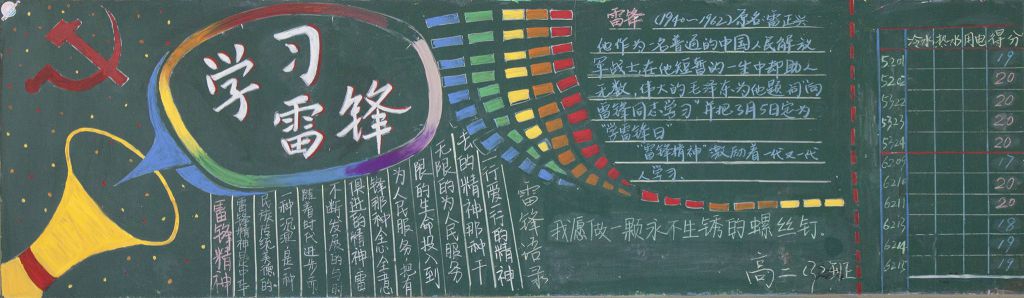 学习
雷锋
雷锋 (1940—1962)原名雷正兴
他作为一名普通的中国人民解放
军战士在他短暂的一生中帮助人
无数,伟大的毛泽东为他题词"向
雷锋同志学习"并把3月5日定为
"学雷锋日"
"雷锋精神"激励着一代又一代
人学习.
雷锋语录
我愿做一颗永不生锈的螺丝钉.
高二(3)2班
行爱行的精神
去的精神那种干
无限的为人民服务
限的生命投入到
为人民服务,把有
锋那种全心全意
俱进的精神,雷
不断发展的与时
随着时代进步而
种沉淀,是一种
民族传统美德的
雷锋精神是中华
雷锋精神
冷水 热水 用电 得分
5201 19
5202 20
5322 20
5323 20
5324 20
6209 17
6210 20
6211 20
6213 18
6214 19
6215 19